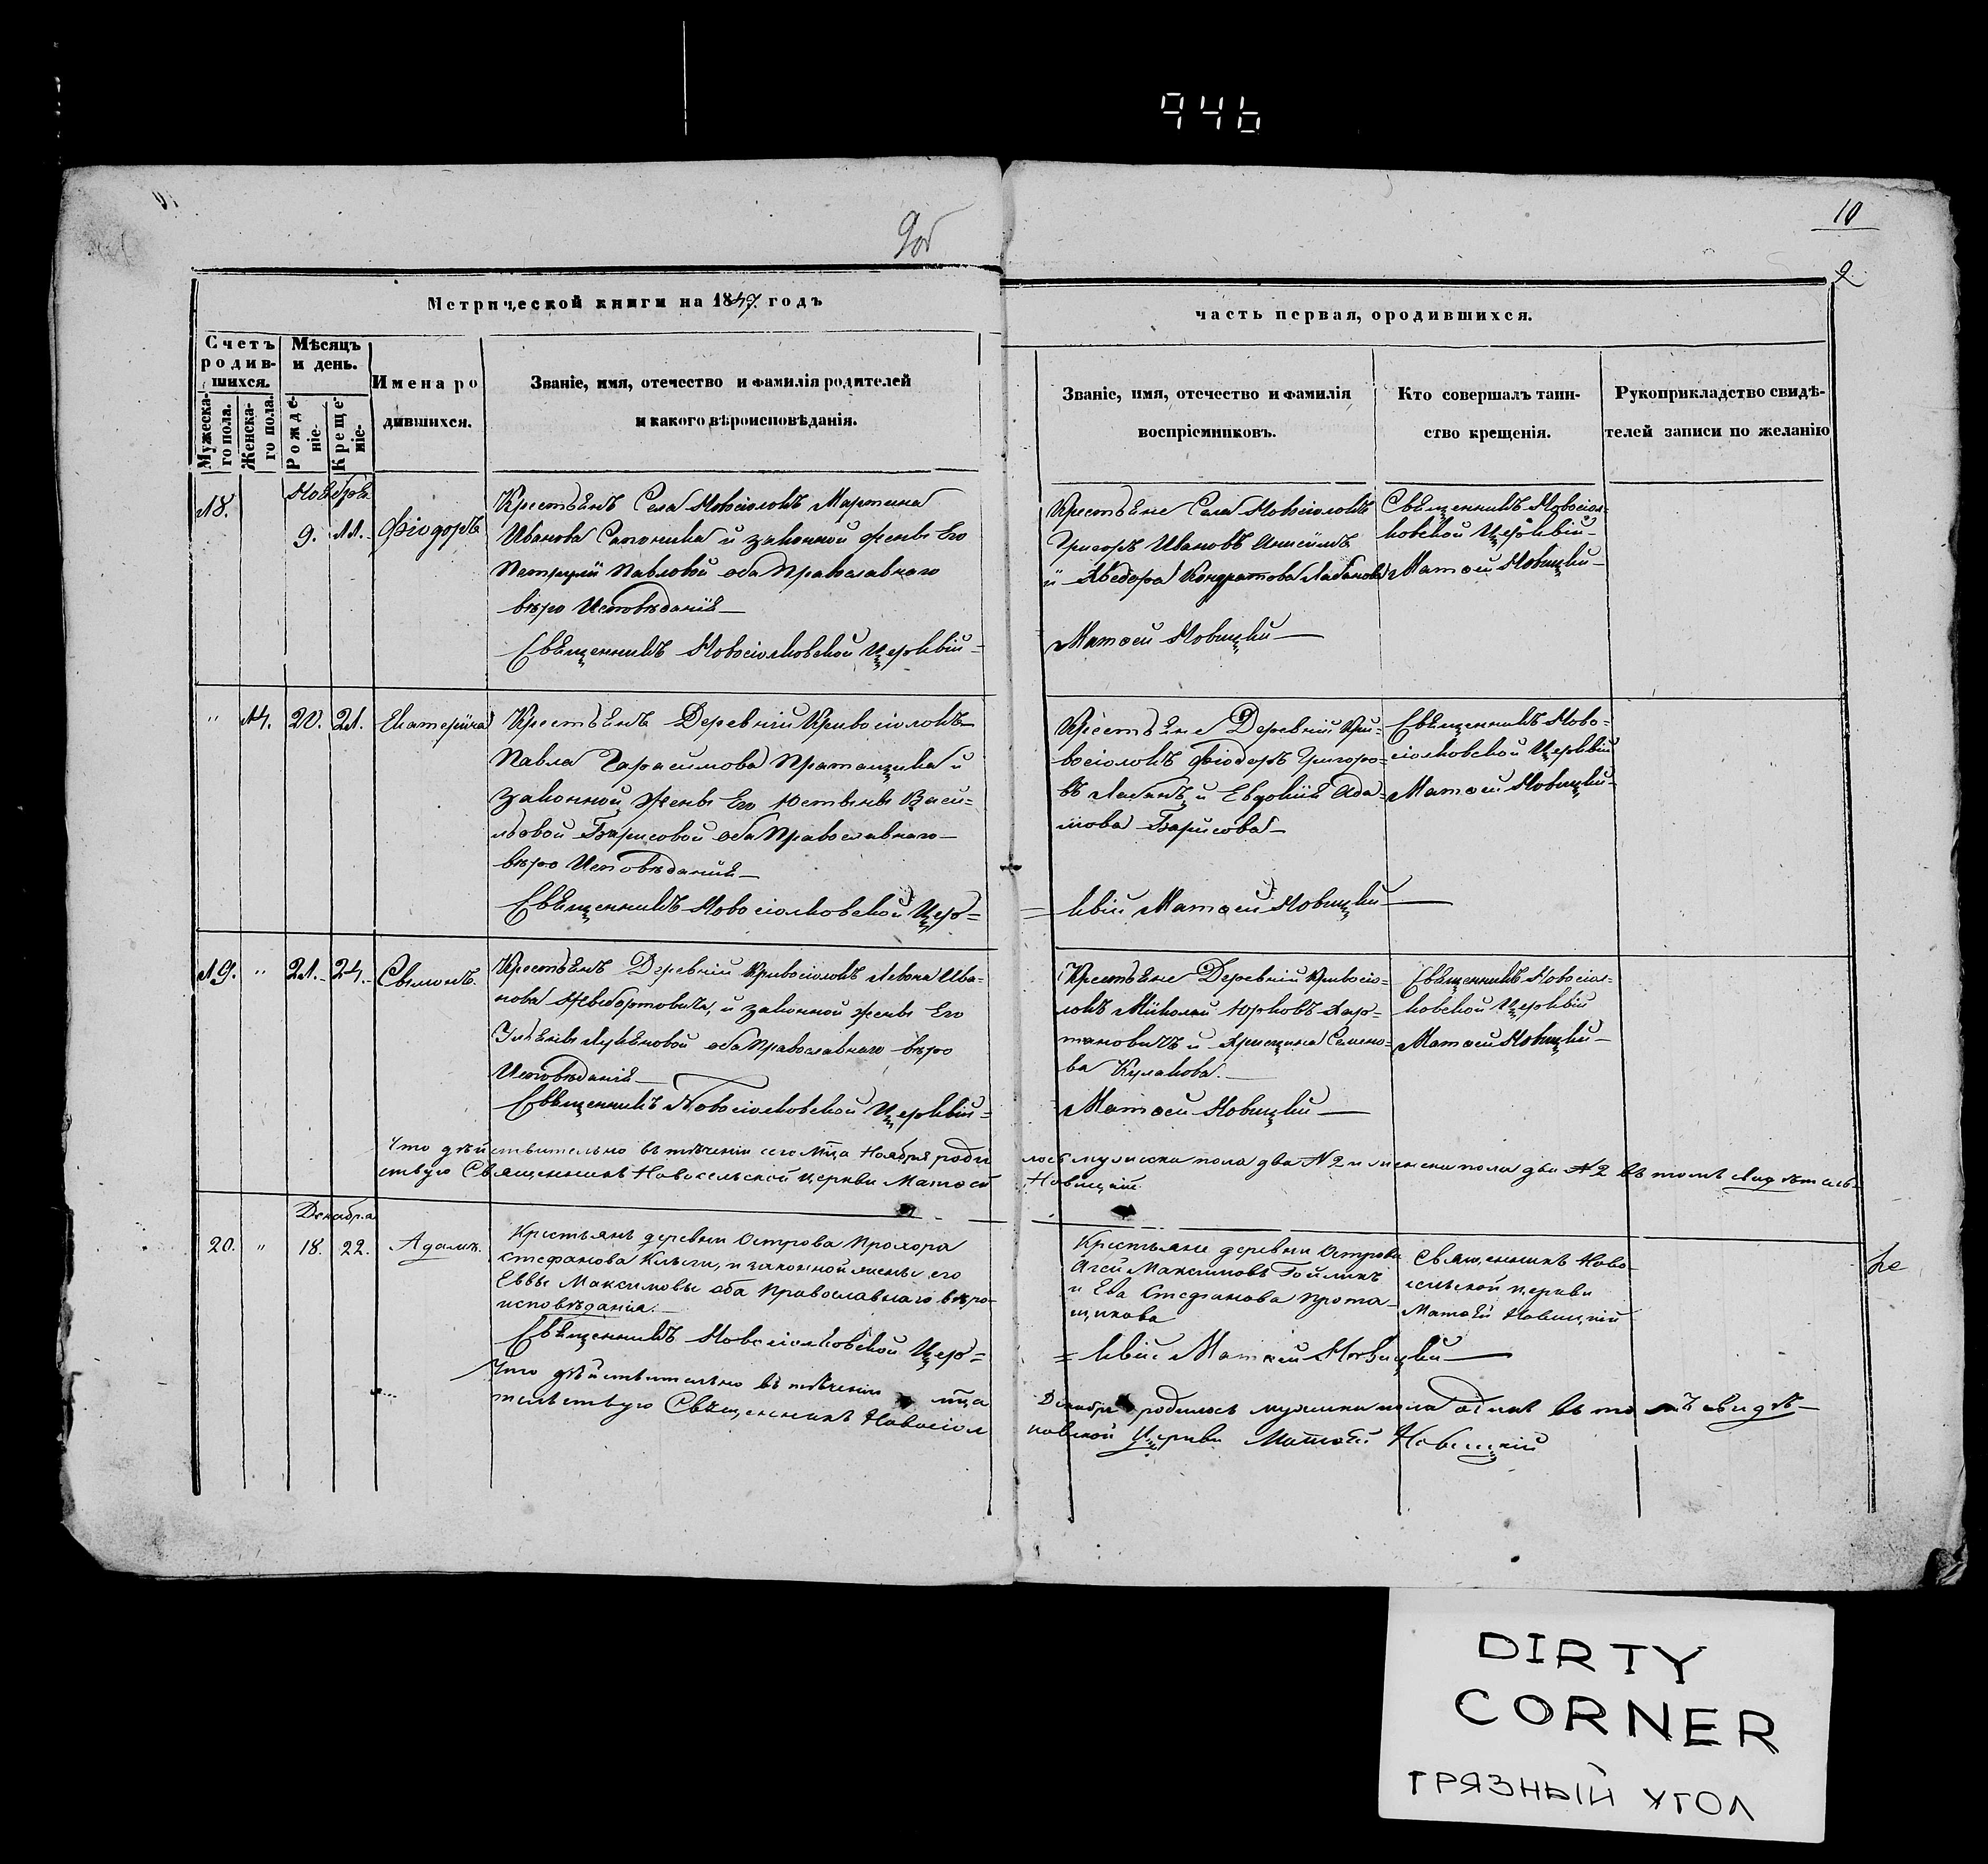 946
9об
10
2
Метрической книги на 1847. годъ
часть первая, ородившихся.
Счетъ родив-
шихся.
Мѣсяцъ
и день.
Мужеска-
го пола.
Женска-
го пола.
Рожде-
ніе.
Креще-
ніе.
Имена ро
дившихся.
Званіе, имя, отечество и фамилія родителей
и какого вѣроисповѣданія.
Званіе, имя, отечество и фамилія
воспріемниковъ.
Кто совершалъ таин-
ство крещенія.
Рукоприкладство свидѣ-
телей записи по желанію
Ноября
18.
9. 11.
Фіодоръ
Крестьянъ Села Новосіолокъ Мартина
Иванова Сапонника и законной жены Его
Павловой оба Православнаго
вѣро Исповѣданія
Священникъ Новосіолковской Церквіи
Крестьяне Села Новосіолокъ
Григоръ Ивановъ
и Хведора Кондратова Лабанова
Матөеи Новицки
Священникъ Новосіол-
ковской Церквіи
Матөеи Новицки
" 14. 20. 21. Екатерина
Крестьянъ Деревніи Кривосіолокъ
Павла Гарасимова Пратащика и
законной жены Его Юстыны Васи=
льовой Барисовой оба Православнаго
вѣро Исповѣданія
Священникъ Новосіолковской Цер=
Крестьяне Деревніи Кри=
восіолокъ Фіодоръ Григоро=
въ Лабанъ и Евдокія Ада=
мова Барисова
= квіи Матөеи Новицки
Священникъ Ново=
сіолковской Церквіи
Матөеи Новицки
19. " 21. 24. Сымонъ.
Крестьянъ Деревніи Кривосіолокъ Левона Ива=
нова и законной жены Его
Ульяны Лукяновой оба Православнаго вѣро
Исповѣданія
Священникъ Новосіолковской Церквіи=
Крестьяне Деревніи Кривосіо=
локъ Миколай Юрковъ Хар=
тановичъ и Хрисцина Семено=
ва Кулакова.
Матөеи Новицки
Священникъ Новосіол=
ковской Церквіи
Матөеи Новицки
Что дѣйствительно въ теченіи сего М-ца Ноября роди
лось мужеска пола два №2 и женска пола два №2 въ томъ свидѣтель-
ствую Священникъ Новосельской церкви Матөей
Новицкій
Декабря
20. " 18. 22. Адамъ.
Крестьянъ деревни Острова Прохора
Стефанова и законной жены его
Еввы Максимовы оба Православнаго вѣро-
исповѣданія.
Священникъ Новосіолковской Цер=
Крестьяне деревни Острова
Агей Максимовъ
и Ева Стефанова Прота-
щикова
= квіи Матөеи Новицки
Священникъ Ново-
сельской церкви
Матөей Новицкій
Что дѣйствительно въ теченіи м-ца
Декабря родилось мужеска пола одинъ въ томъ свидѣ-
тельствую Священникъ Новосіол
ковской Церкви Матөей Новицкій
DIRTY
CORNER
ГРЯЗНЫЙ УГОЛ